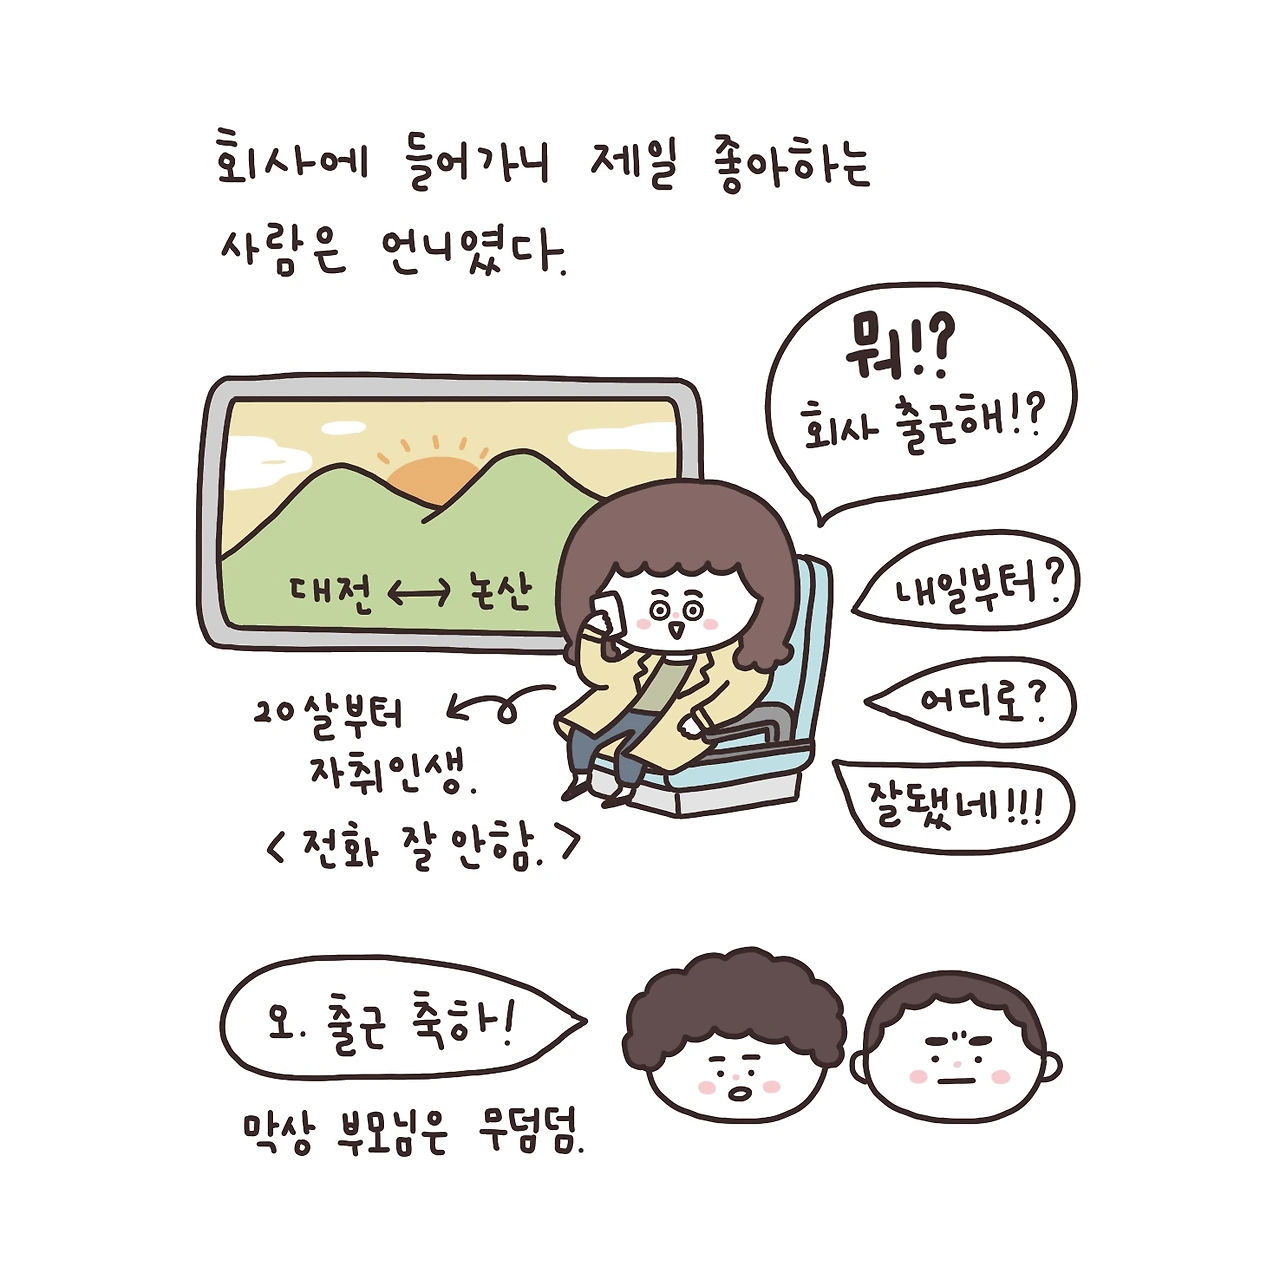 회사에 들어가니 제일 좋아하는
사람은 언니였다.
뭐!?
회사 출근해!?
대전 ↔ 논산
내일부터?
어디로?
잘됐네!!!
20살부터
자취인생.
<전화 잘 안함.>
오. 출근 축하!
막상 부모님은 무덤덤.